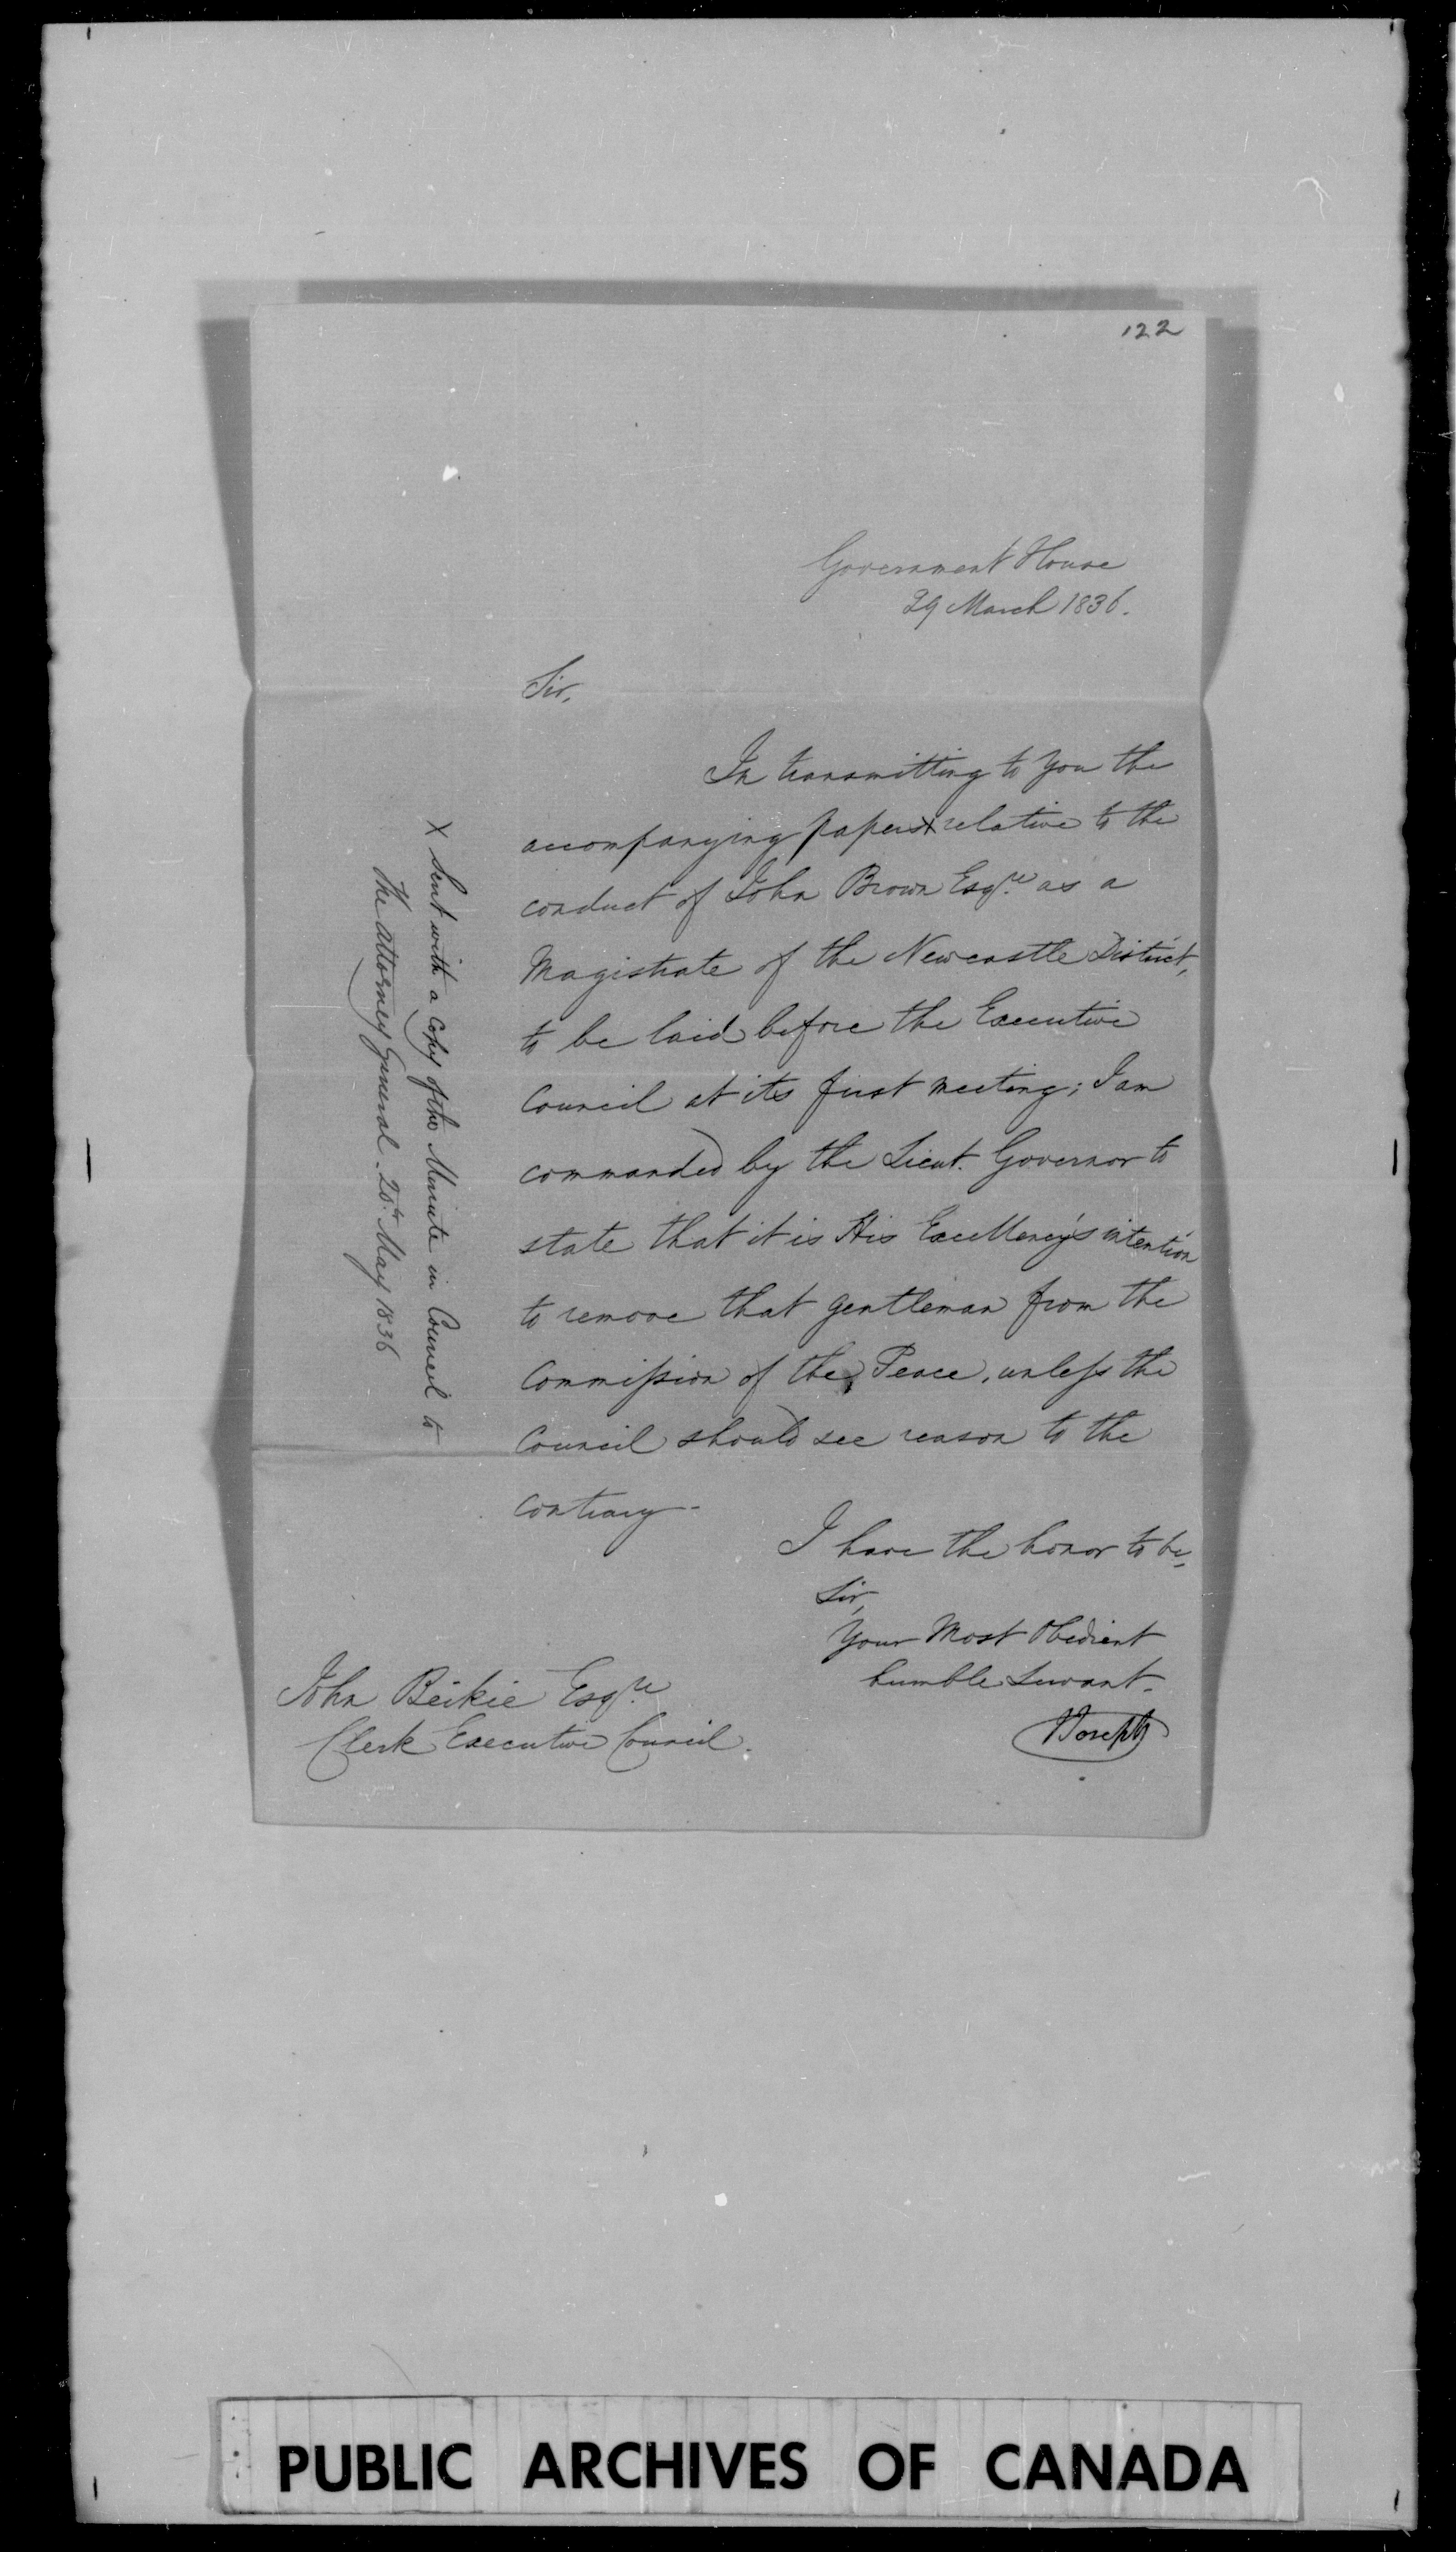 122
Government House
29 March 1836.
Sir,
In transmitting to you the
accompanying papers x relative to the
conduct of John Brown Esqre as a
Magistrate of the Newcastle District,
to be laid before the Executive
Council at its first meeting; I am
commanded by the Lieut. Governor to
state that it is His Excellency's intention
to remove that gentleman from the
Commission of the Peace, unless the
Council should see reason to the
contrary-
I have the honor to be,
Sir,
Your Most Obedient
humble Servant.
J Joseph
John Beikie Esqre
Clerk Executive Council.
X Sent with a Copy of the Minute in Council to
the Attorney General. 20th May 1836
PUBLIC ARCHIVES OF CANADA